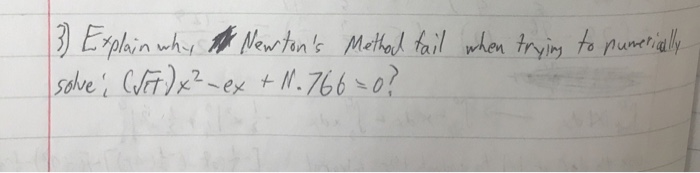 3) Explain why Newton's Method fail when trying to numerically
solve: (√π)x² - ex + 11.766 = 0?